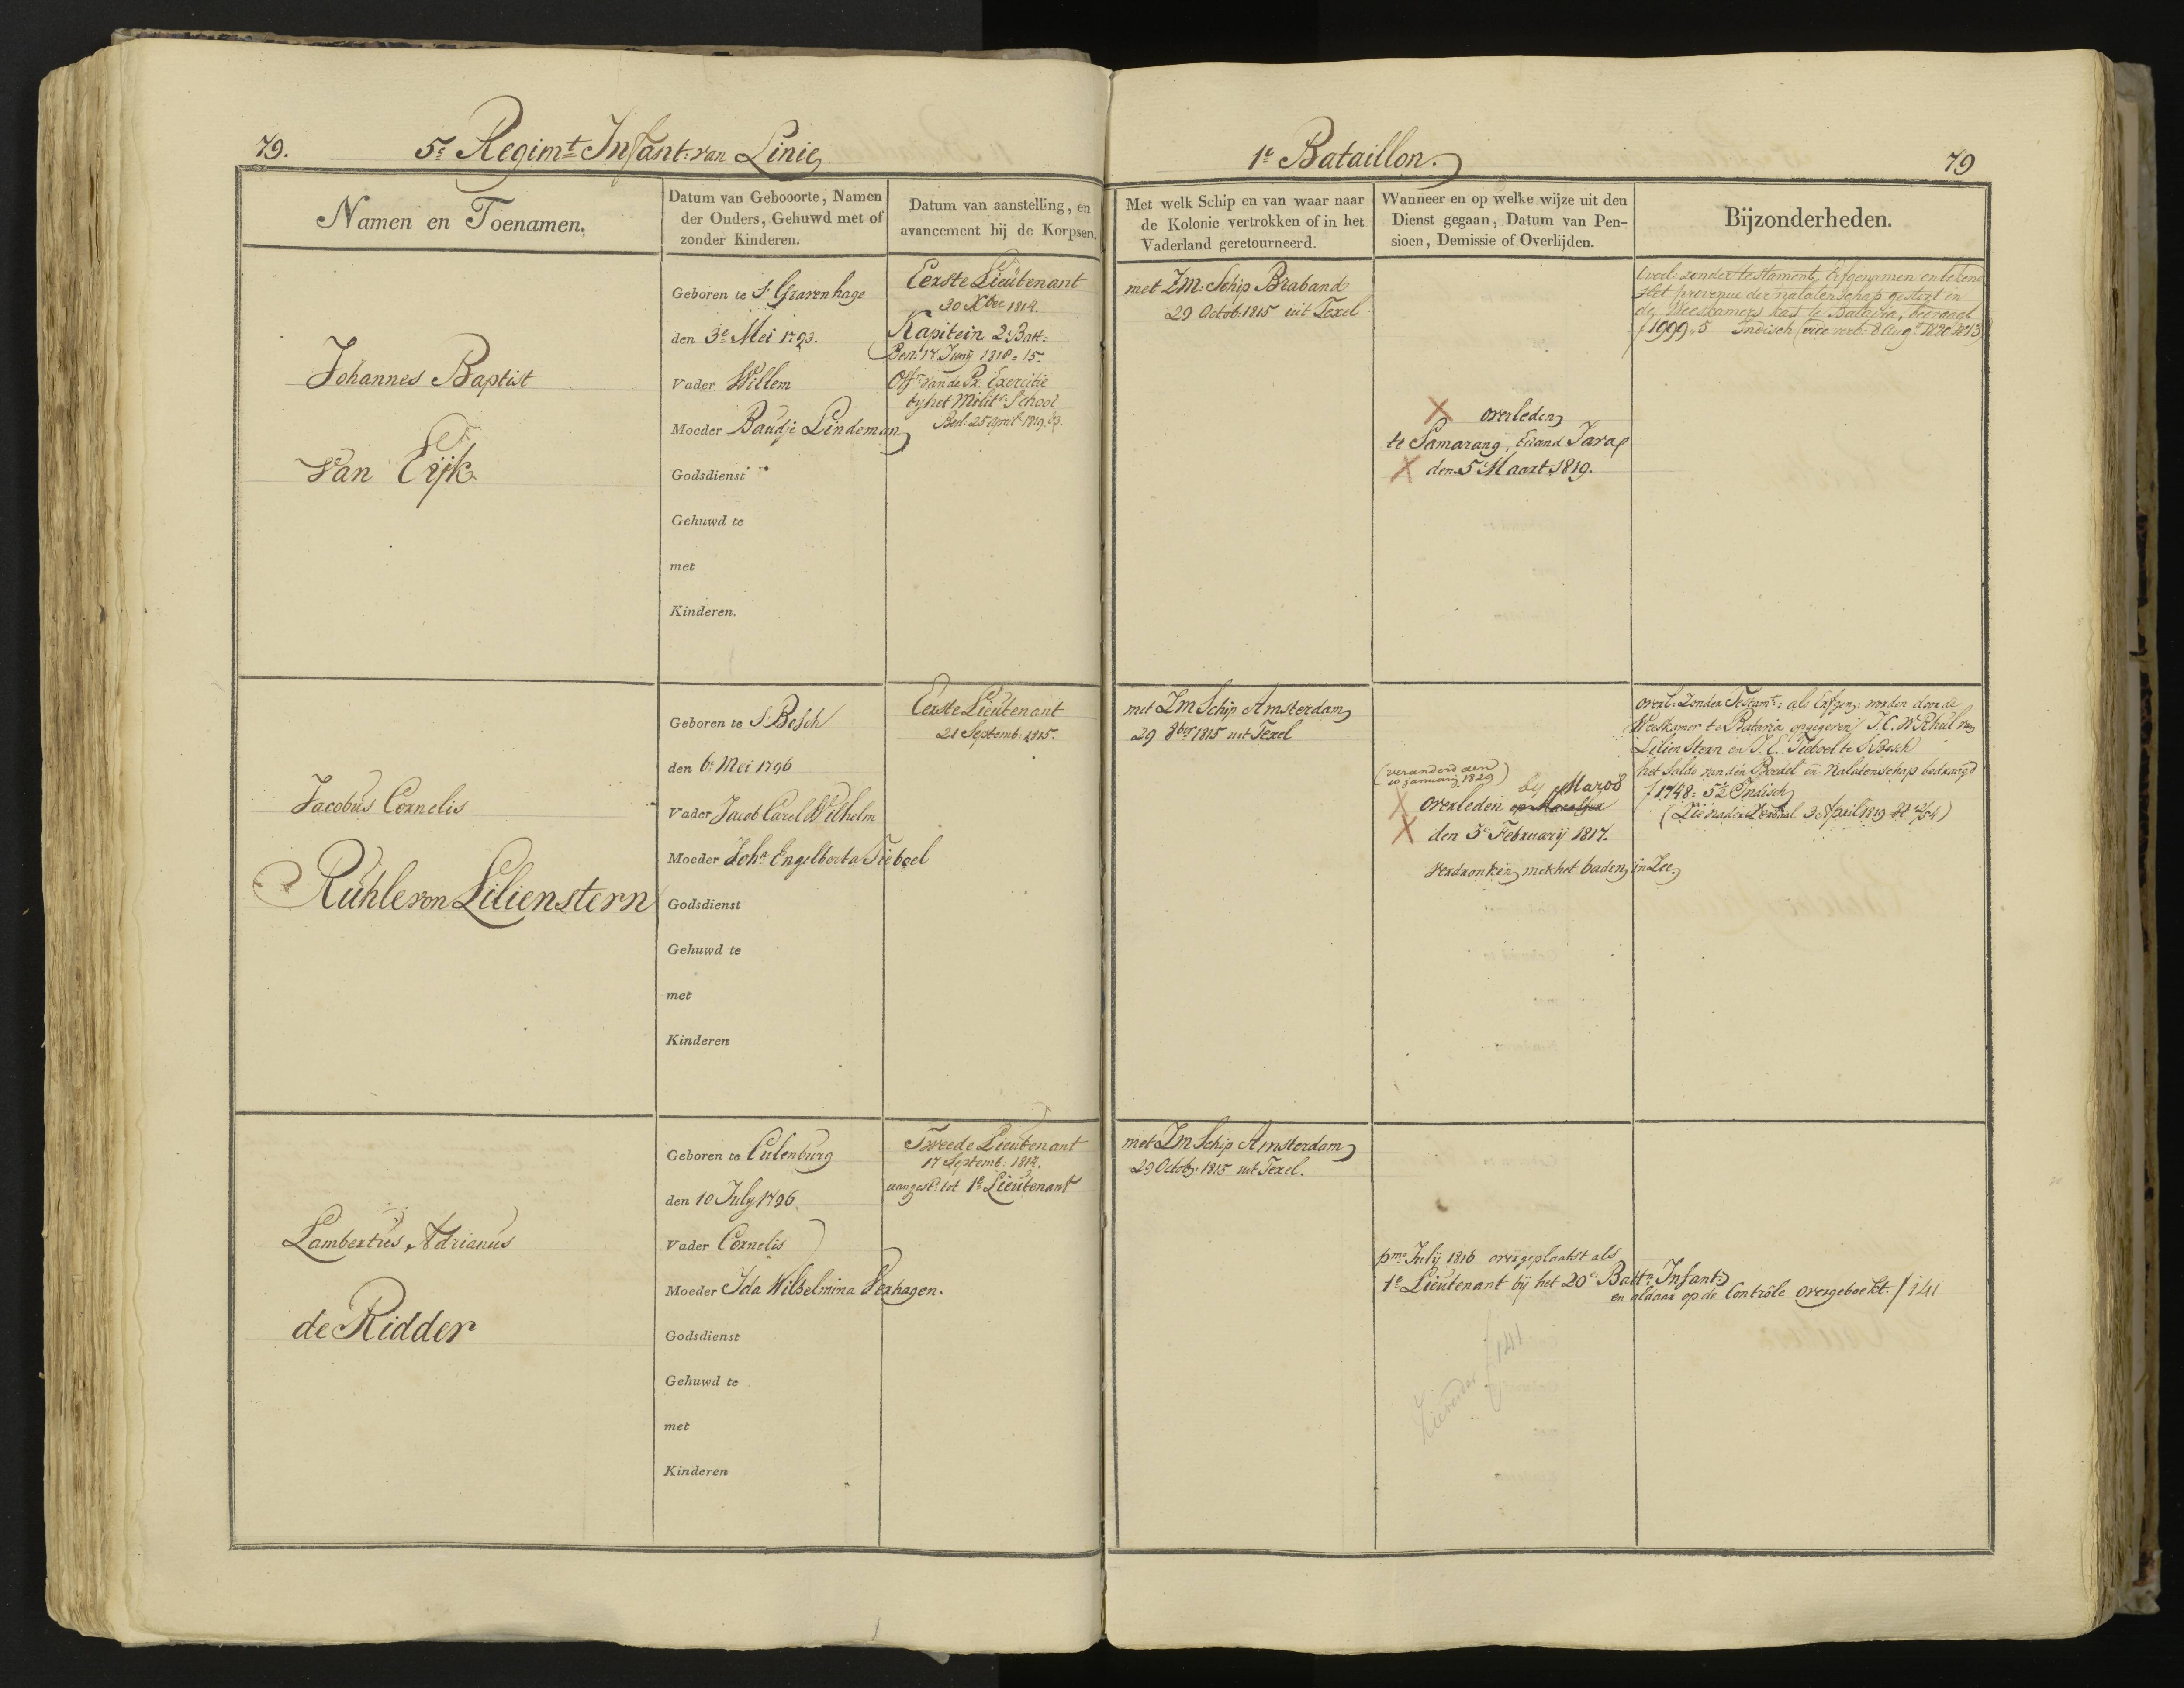 79.
5e Regimt Infant: van Linie
1e Bataillon.
79
Namen en Toenamen.
Datum van Gebooorte, Namen
der Ouders, Gehuwd met of
zonder Kinderen.
Datum van aanstelling, en
avancement bij de Korpsen.
Met welk Schip en van waar naar
de Kolonie vertrokken of in het
Vaderland geretourneerd.
Wanneer en op welke wijze uit den
Dienst gegaan, Datum van Pen-
sioen, Demissie of Overlijden.
Bijzonderheden.
Johannes Baptist
van Eijk
Geboren te S: Gravenhage
den 3e Mei 1793.
Vader Willem
Moeder Baudje Lindeman
Godsdienst
Gehuwd te
met
Kinderen.
Eerste Lieutenant
30 Xber 1814.
Kapitein 2e Batt:
Besl: 17 Junij 1818 = 15.
Offr van de Pr. Exercitie
by het Milite School
Besl: 25 april 1819
met ZM: Schip Braband
29 Octob: 1815 uit Texel
overleden
te Samarang, Eiland Java
den 5e Maart 1819.
Overl: zonder testament, Erfgenamen onbekend
Het provenue der nalatenschap gestort in
de Weeskamers kas te Batavia, bedraagt
f 1999,,5 Indisch (vide verb: 8 Augs 1820 No 13)
Jacobus Cornelis
Rühle von Lilienstern
Geboren te S: Bosch
den 6e Mei 1796
Vader Jacob Carel Wilhelm
Moeder Joha Engelberta Tieboel
Godsdienst
Gehuwd te
met
Kinderen
Eerste Lieutenant
21 Septemb: 1815.
met ZM Schip Amsterdam
29 8ber 1815 uit Texel
(veranderd den
10 january 1829)
by Maros
overleden op
den 3e February 1817.
verdronken met het baden in Zee
overl: zonder Testamt: als Erfgen: worden door de
Weeskamer te Batavia opgegeven J. C. W. Rhul von
Lilien Stern en J. E. Tieboel te S Bosch
het Saldo van den Boedel en Nalatenschap bedraagd
f 1748: 5½ Indisch
(Zie nader Verbaal 3 April 1819 No 2/54)
Lambertus Adrianus
de Ridder
Geboren te Culenburg
den 10 July 1796
Vader Cornelis
Moeder Ida Wilhelmina Verhagen.
Godsdienst
Gehuwd te
met
Kinderen
Tweede Lieutenant
17 Septemb: 1814.
aangest: tot 1e Lieutenant
met ZM Schip Amsterdam
29 Octob: 1815 uit Texel.
pmo July 1816 overgeplaatst als
1e Lieutenant bij het 20e Battn Infant:
en aldaar op de Controle overgeboekt. f 141
Zie verder f 141